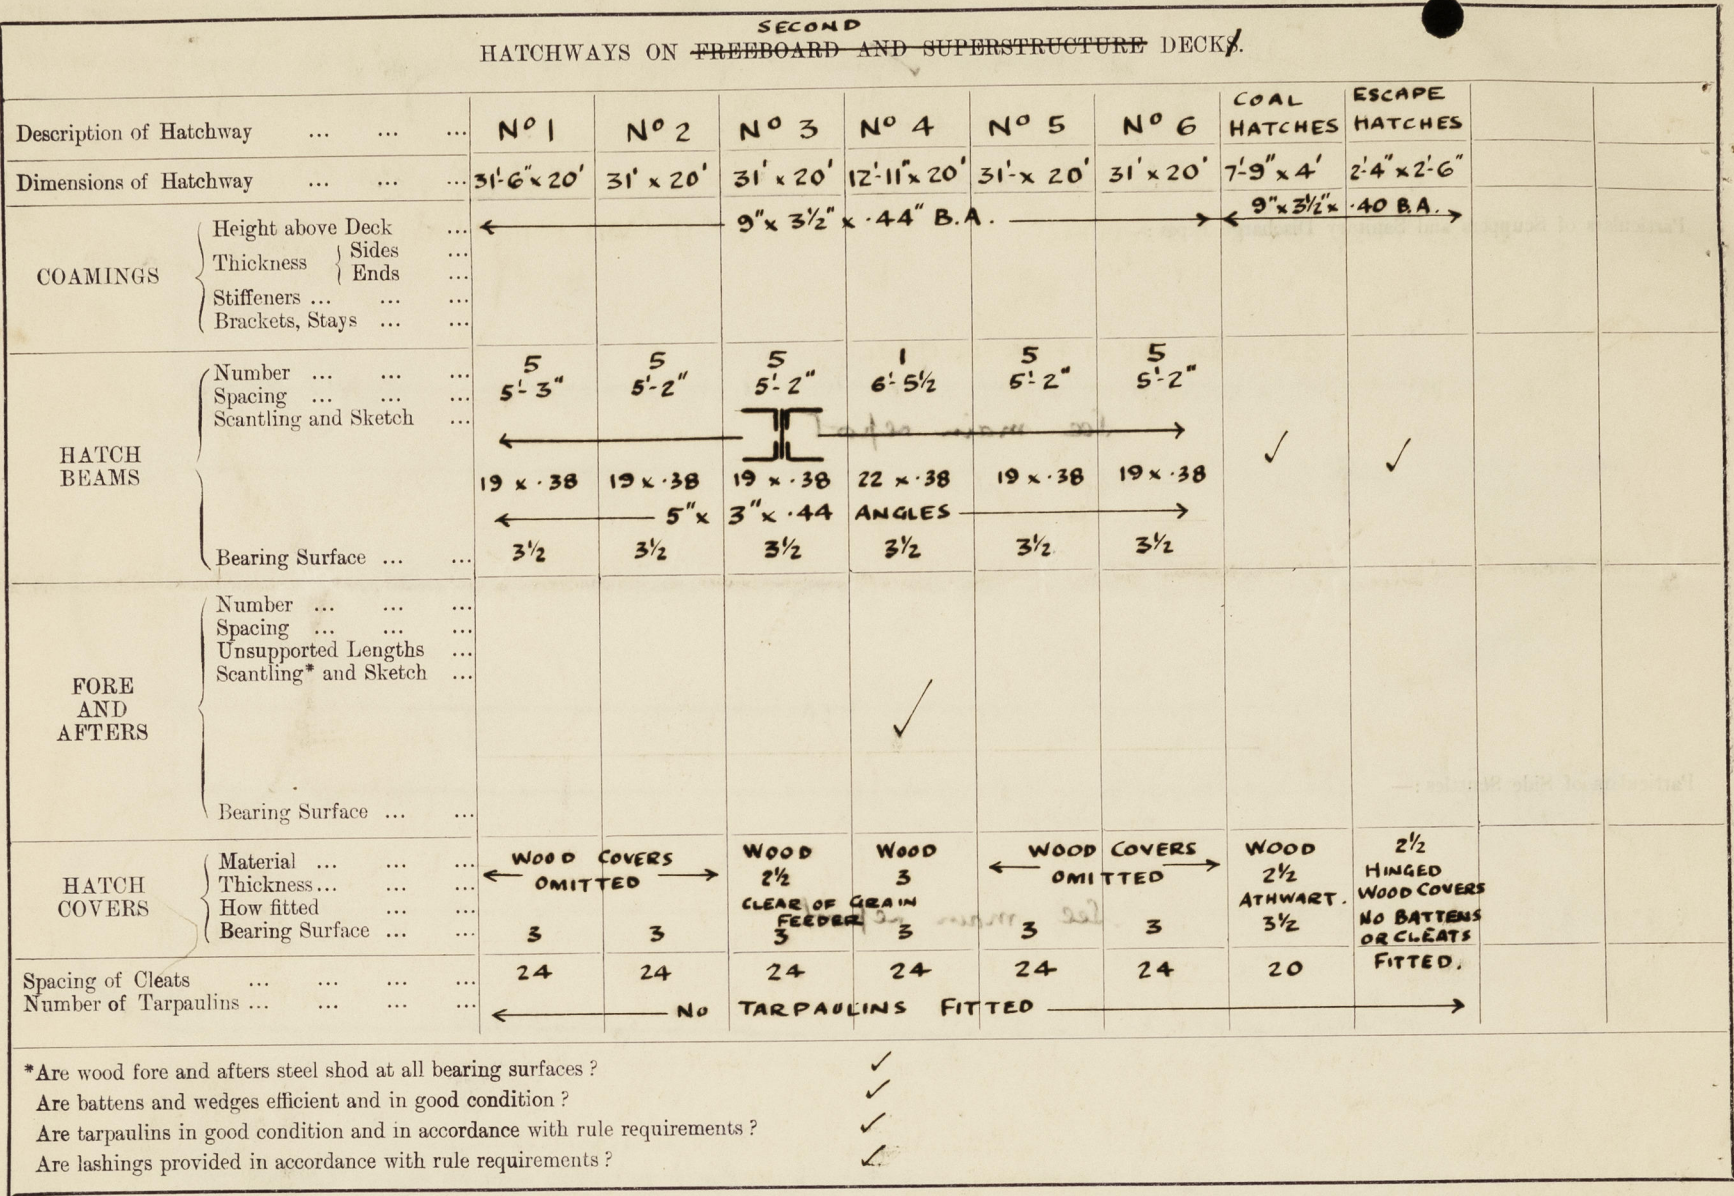 SECOND
HATCHWAYS ON FREEBOARD AND SUPERSTRUCTURE DECKS.
Description of Hatchway ... ... ... Nº 1 Nº 2 Nº 3 Nº 4 Nº 5 Nº 6 COAL HATCHES ESCAPE HATCHES
Dimensions of Hatchway ... ... ... 31'-6" x 20' 31' x 20' 31' x 20' 12'-11" x 20' 31'- x 20' 31' x 20' 7'-9" x 4' 2'-4" x 2'-6"
COAMINGS
Height above Deck ... 9" x 3½" x .44" B.A. 9" x 3½" x .40 B.A.
Thickness Sides ...
Ends ...
Stiffeners ... ... ...
Brackets, Stays ... ...
HATCH BEAMS
Number ... ... ... 5 5 5 1 5 5
Spacing ... ... ... 5'-3" 5'-2" 5'-2" 6'-5½ 5'-2" 5'-2"
Scantling and Sketch ... ✓ ✓
19 x .38 19 x .38 19 x .38 22 x .38 19 x .38 19 x .38
5" x 3" x .44 ANGLES
Bearing Surface ... ... 3½ 3½ 3½ 3½ 3½ 3½
FORE AND AFTERS
Number ... ... ...
Spacing ... ... ...
Unsupported Lengths ...
Scantling* and Sketch ... ✓
Bearing Surface ... ...
HATCH COVERS
Material ... ... ... WOOD COVERS OMITTED WOOD WOOD WOOD COVERS OMITTED WOOD 2½
Thickness... ... ... 2½ 3 2½ HINGED
How fitted ... ... CLEAR OF GRAIN FEEDER ATHWART. WOOD COVERS
Bearing Surface ... ... 3 3 3 3 3 3 3½ NO BATTENS OR CLEATS
Spacing of Cleats ... ... ... ... 24 24 24 24 24 24 20 FITTED.
Number of Tarpaulins ... ... ... ... NO TARPAULINS FITTED
*Are wood fore and afters steel shod at all bearing surfaces ? ✓
Are battens and wedges efficient and in good condition ? ✓
Are tarpaulins in good condition and in accordance with rule requirements ? ✓
Are lashings provided in accordance with rule requirements ? ✓